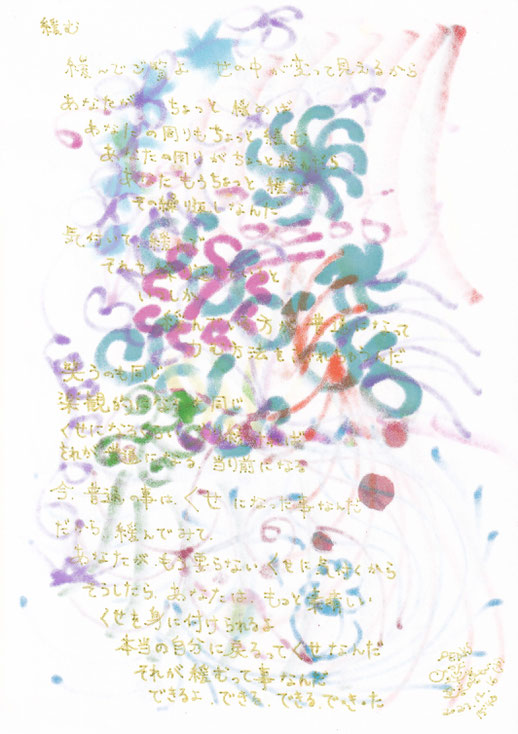 緩む
緩んでご覧よ 世の中が変って見えるから
あなたが ちょっと 緩めば
あなたの周りも ちょっと 緩む
あなたの周りが ちょっと 緩んだら
もうちょっと 緩む
その繰り返しなんだ
気付いて 緩んで
それを
いつしか
緩んでいる方が なって
力む方法を んだ
笑うのも同じ
楽観的 同じ
くせになる
それが普通になる 当り前になる
今 普通の事は、くせ になった事なんだ
だから 緩んでみて
あなたが、もう要らない くせに気付くから
そうしたら、あなたは、もっと素晴しい
くせを身に付けられるよ
本当の自分に戻るって くせなんだ
それが緩むって事なんだ
できるよ、できる、できる、で・き・た